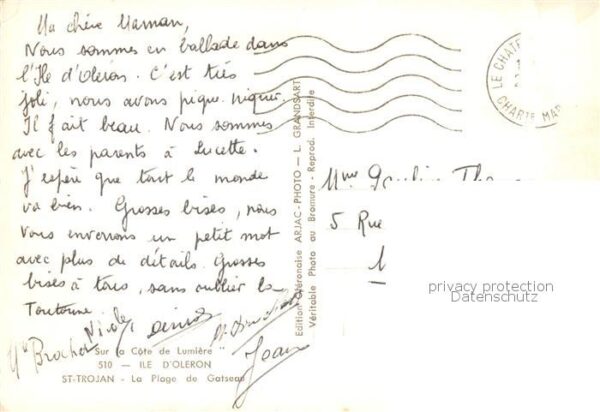 Ma chère Maman,
Nous sommes en ballade dans
l'Ile d'Oléron. C'est très
joli, nous avons pique-niqué.
Il fait beau. Nous sommes
avec les parents à Lucette.
J'espère que tout le monde
va bien. Grosses bises, nous
vous enverrons un petit mot
avec plus de détails. Grosses
bises à tous, sans oublier la
Toutoune.
Jean
"Sur la Côte de Lumière"
510 — ILE D'OLERON
ST-TROJAN - La Plage de Gatseau
Edition Oléronaise ARJAC-PHOTO — L. GRANDSART
Véritable Photo au Bromure - Reprod. Interdite
LE CHATE
CHARTE MAR
Mme
5 Rue
privacy protection
Datenschutz